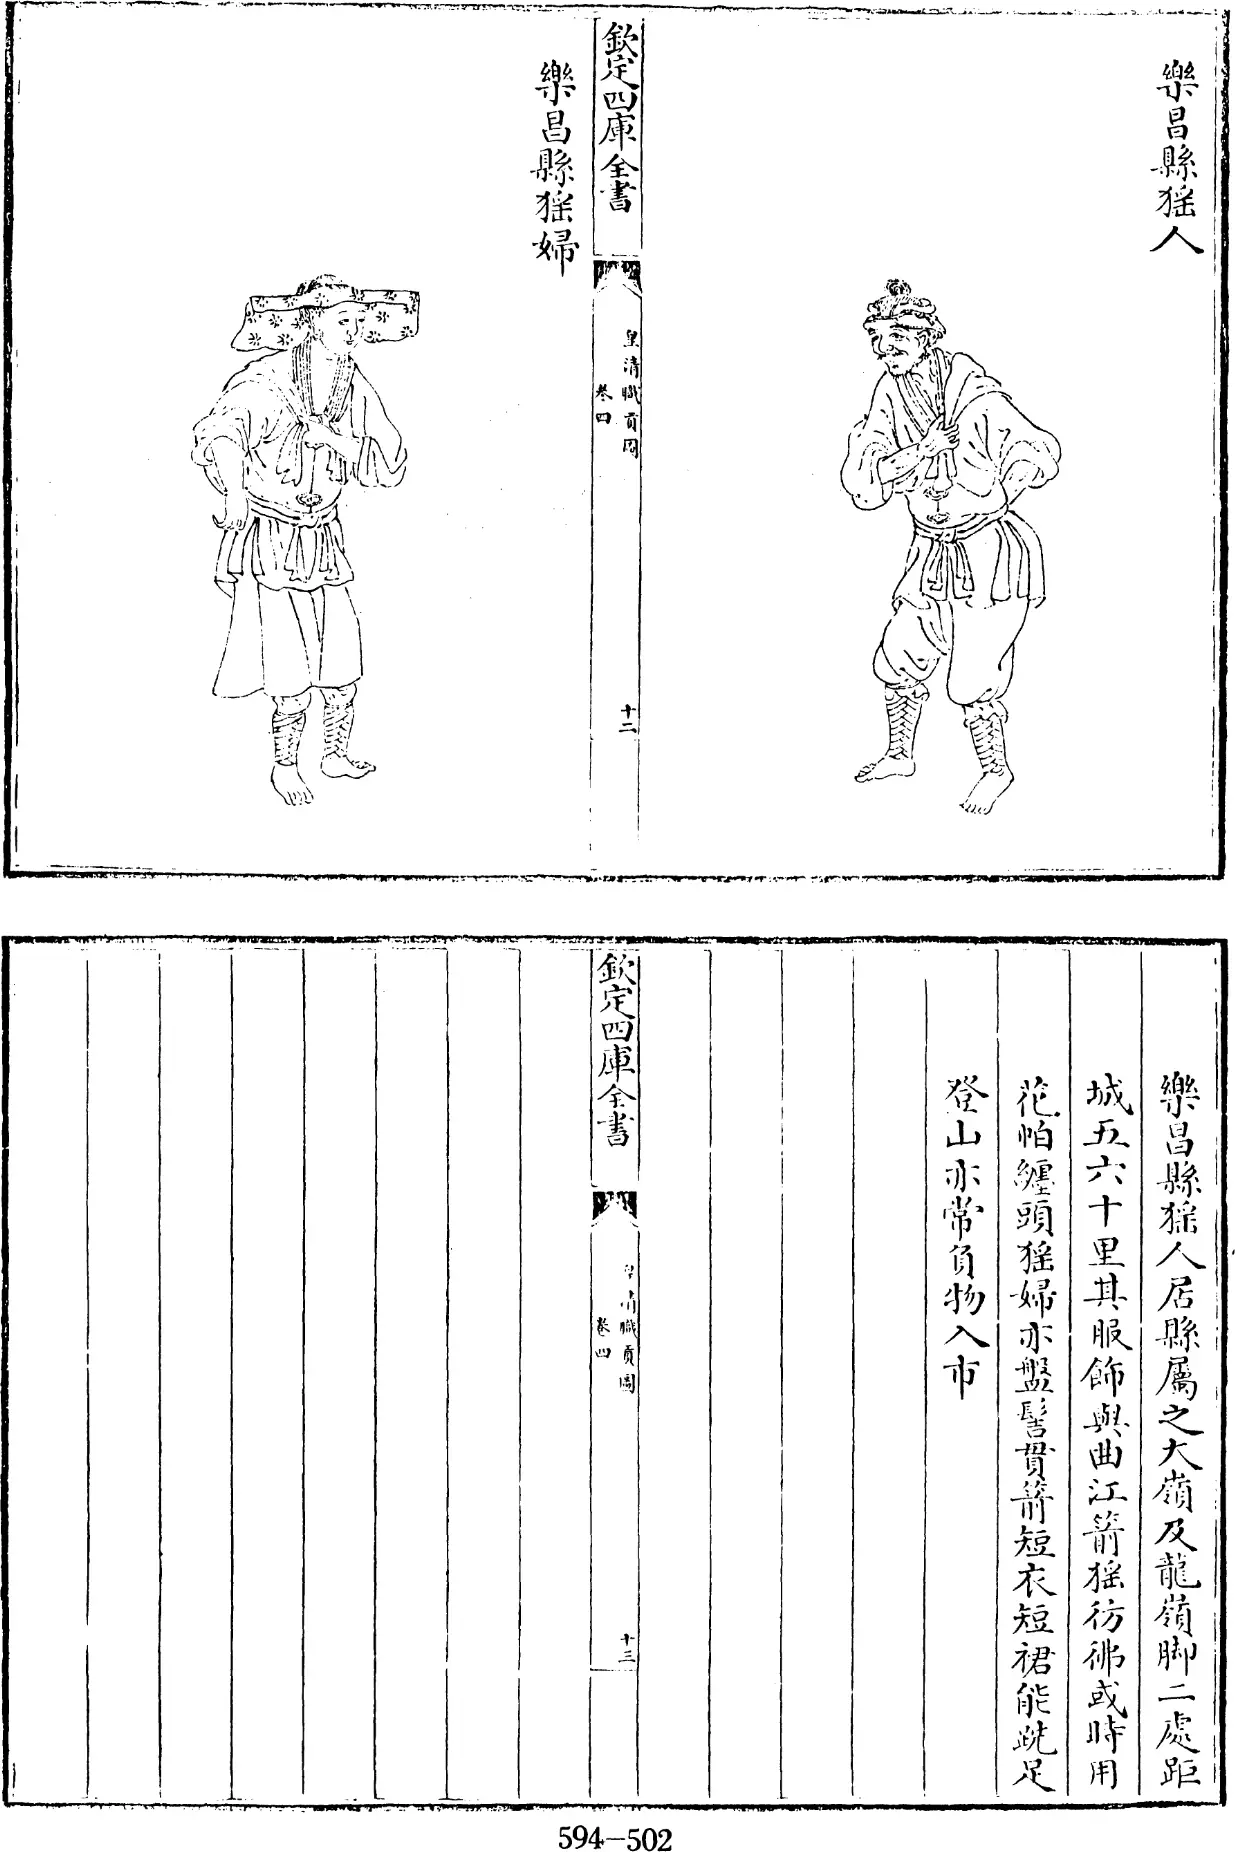 樂昌縣猺人
欽定四庫全書
皇清職貢圖
卷四
十二
樂昌縣猺婦
樂昌縣猺人居縣屬之大嶺及龍嶺脚二處距
城五六十里其服飾與曲江箭猺彷彿或時用
花帕纏頭猺婦亦盤髻貫箭短衣短裙能跣足
登山亦常負物入市
欽定四庫全書
皇清職貢圖
卷四
十三
594-502